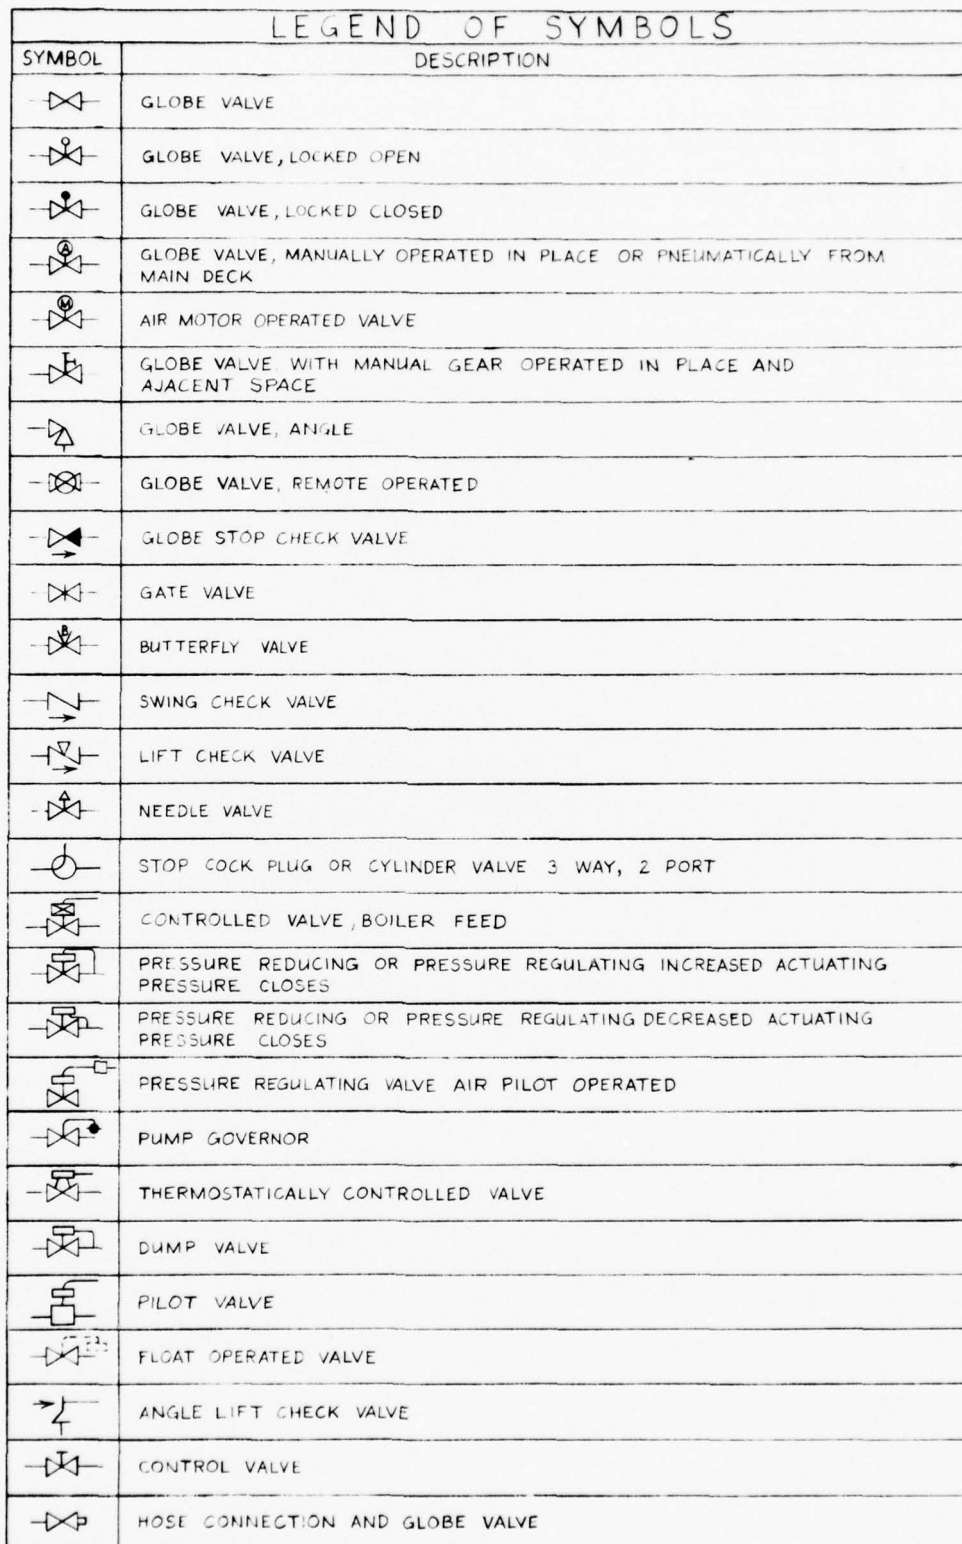 LEGEND OF SYMBOLS
SYMBOL DESCRIPTION
GLOBE VALVE
GLOBE VALVE, LOCKED OPEN
GLOBE VALVE, LOCKED CLOSED
A
GLOBE VALVE, MANUALLY OPERATED IN PLACE OR PNEUMATICALLY FROM
MAIN DECK
M
AIR MOTOR OPERATED VALVE
GLOBE VALVE WITH MANUAL GEAR OPERATED IN PLACE AND
AJACENT SPACE
GLOBE VALVE, ANGLE
GLOBE VALVE, REMOTE OPERATED
GLOBE STOP CHECK VALVE
GATE VALVE
B
BUTTERFLY VALVE
SWING CHECK VALVE
LIFT CHECK VALVE
NEEDLE VALVE
STOP COCK PLUG OR CYLINDER VALVE 3 WAY, 2 PORT
CONTROLLED VALVE, BOILER FEED
PRESSURE REDUCING OR PRESSURE REGULATING INCREASED ACTUATING
PRESSURE CLOSES
PRESSURE REDUCING OR PRESSURE REGULATING DECREASED ACTUATING
PRESSURE CLOSES
PRESSURE REGULATING VALVE AIR PILOT OPERATED
PUMP GOVERNOR
THERMOSTATICALLY CONTROLLED VALVE
DUMP VALVE
PILOT VALVE
FLOAT OPERATED VALVE
ANGLE LIFT CHECK VALVE
CONTROL VALVE
HOSE CONNECTION AND GLOBE VALVE